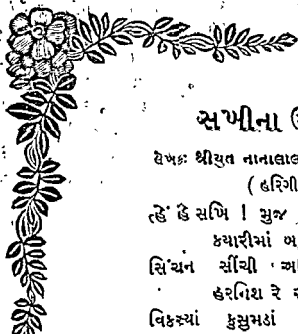 સખીના
લેખકઃ શ્રીયુત નાનાલાલ
( હરિગી
ત્હેં હે સખિ ! મુજ
કયારીમાં બ
સિંચન સીંચી
હરનિશ રે
વિકસ્યાં કુસુમડાં